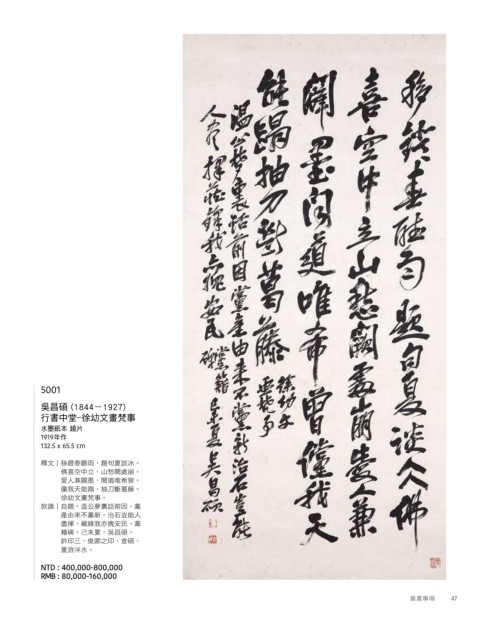 移鐙春聽雨題句夏談冰佛
喜空中立山愁闕處崩愛人兼
闢墨聞道唯希曾儻我天
能蹋抽刀斷葛藤
徐幼文
畫梵事
溫公夢裏話前因黨產由來不黨新治石豈能
人盡擇藏鋒我亦愧安民
黨籍
碑
己未夏吳昌碩
5001
吳昌碩 (1844－1927)
行書中堂-徐幼文畫梵事
水墨紙本 鏡片
1919年作
132.5 x 65.5 cm
釋文｜移鐙春聽雨，題句夏談冰。
佛喜空中立，山愁闕處崩。
愛人兼闢墨，聞道唯希曾。
儻我天能蹋，抽刀斷葛藤。
徐幼文畫梵事。
款識｜自題。溫公夢裏話前因，黨
產由來不黨新。治石豈能人
盡擇，藏鋒我亦愧安民。黨
籍碑。己未夏，吳昌碩。
鈐印三，俊卿之印、倉碩、
重游泮水。
NTD : 400,000-800,000
RMB : 80,000-160,000
書畫專場
47